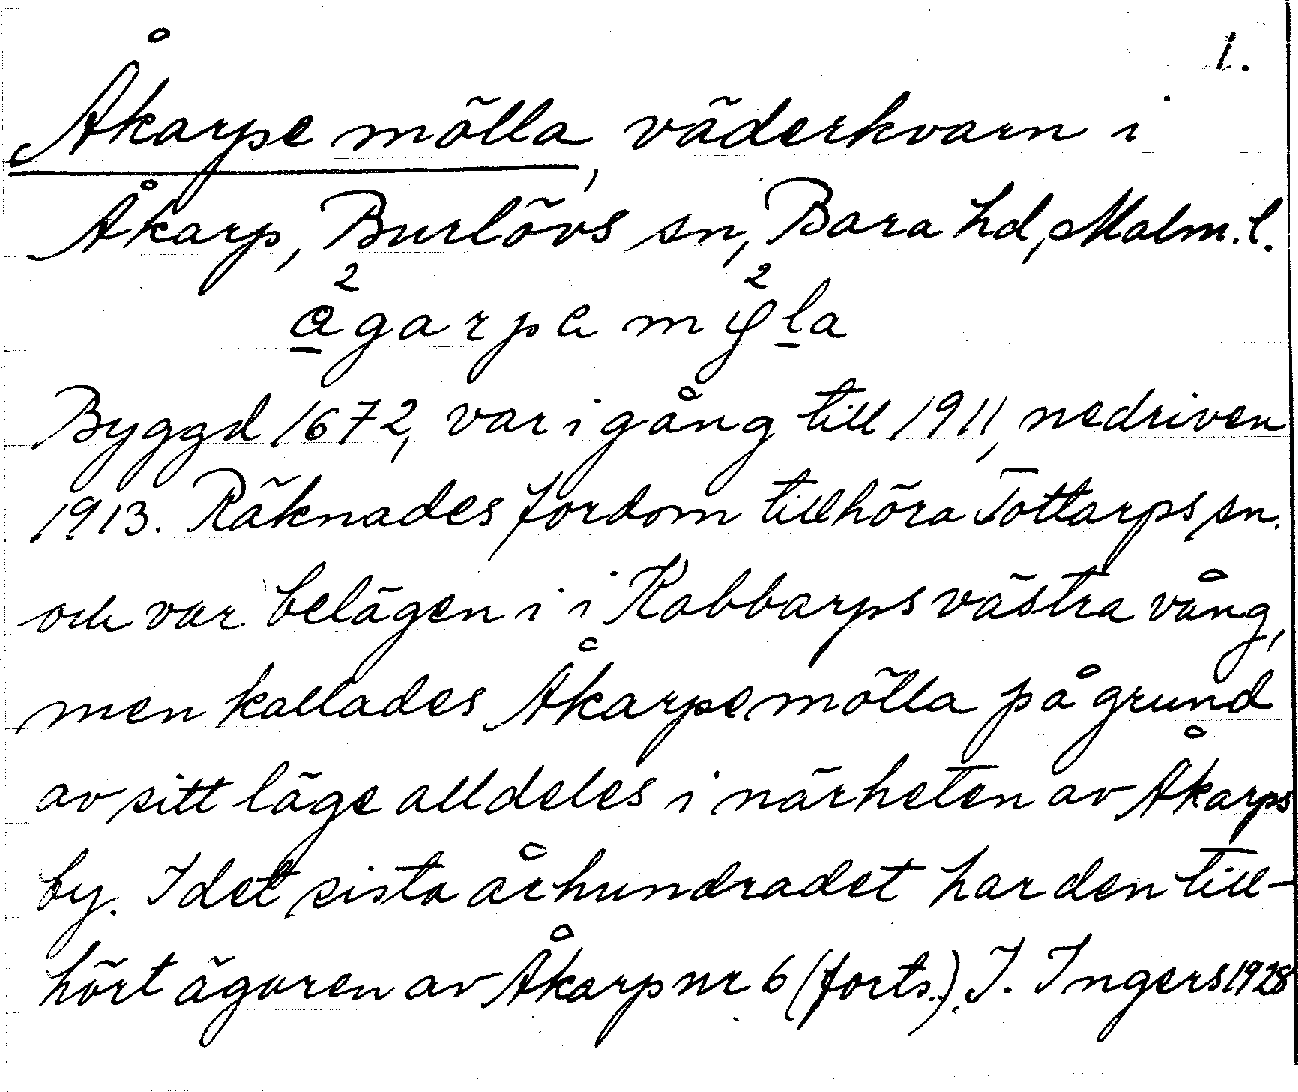 1.
Åkarpe mölla, väderkvarn i
Åkarp, Burlövs sn, Bara hd, Malm. l.
Byggd 1672, var i gång till 1911, nedriven
1913. Räknades fordom tillhöra Tottarps sn.
och var belägen i i Kabbarps västra vång,
men kallades Åkarpe mölla på grund
av sitt läge alldeles i närheten av Åkarps
by. I det sista århundradet har den till-
hört ägaren av Åkarp nr 6 (forts.). I. Ingers 1928